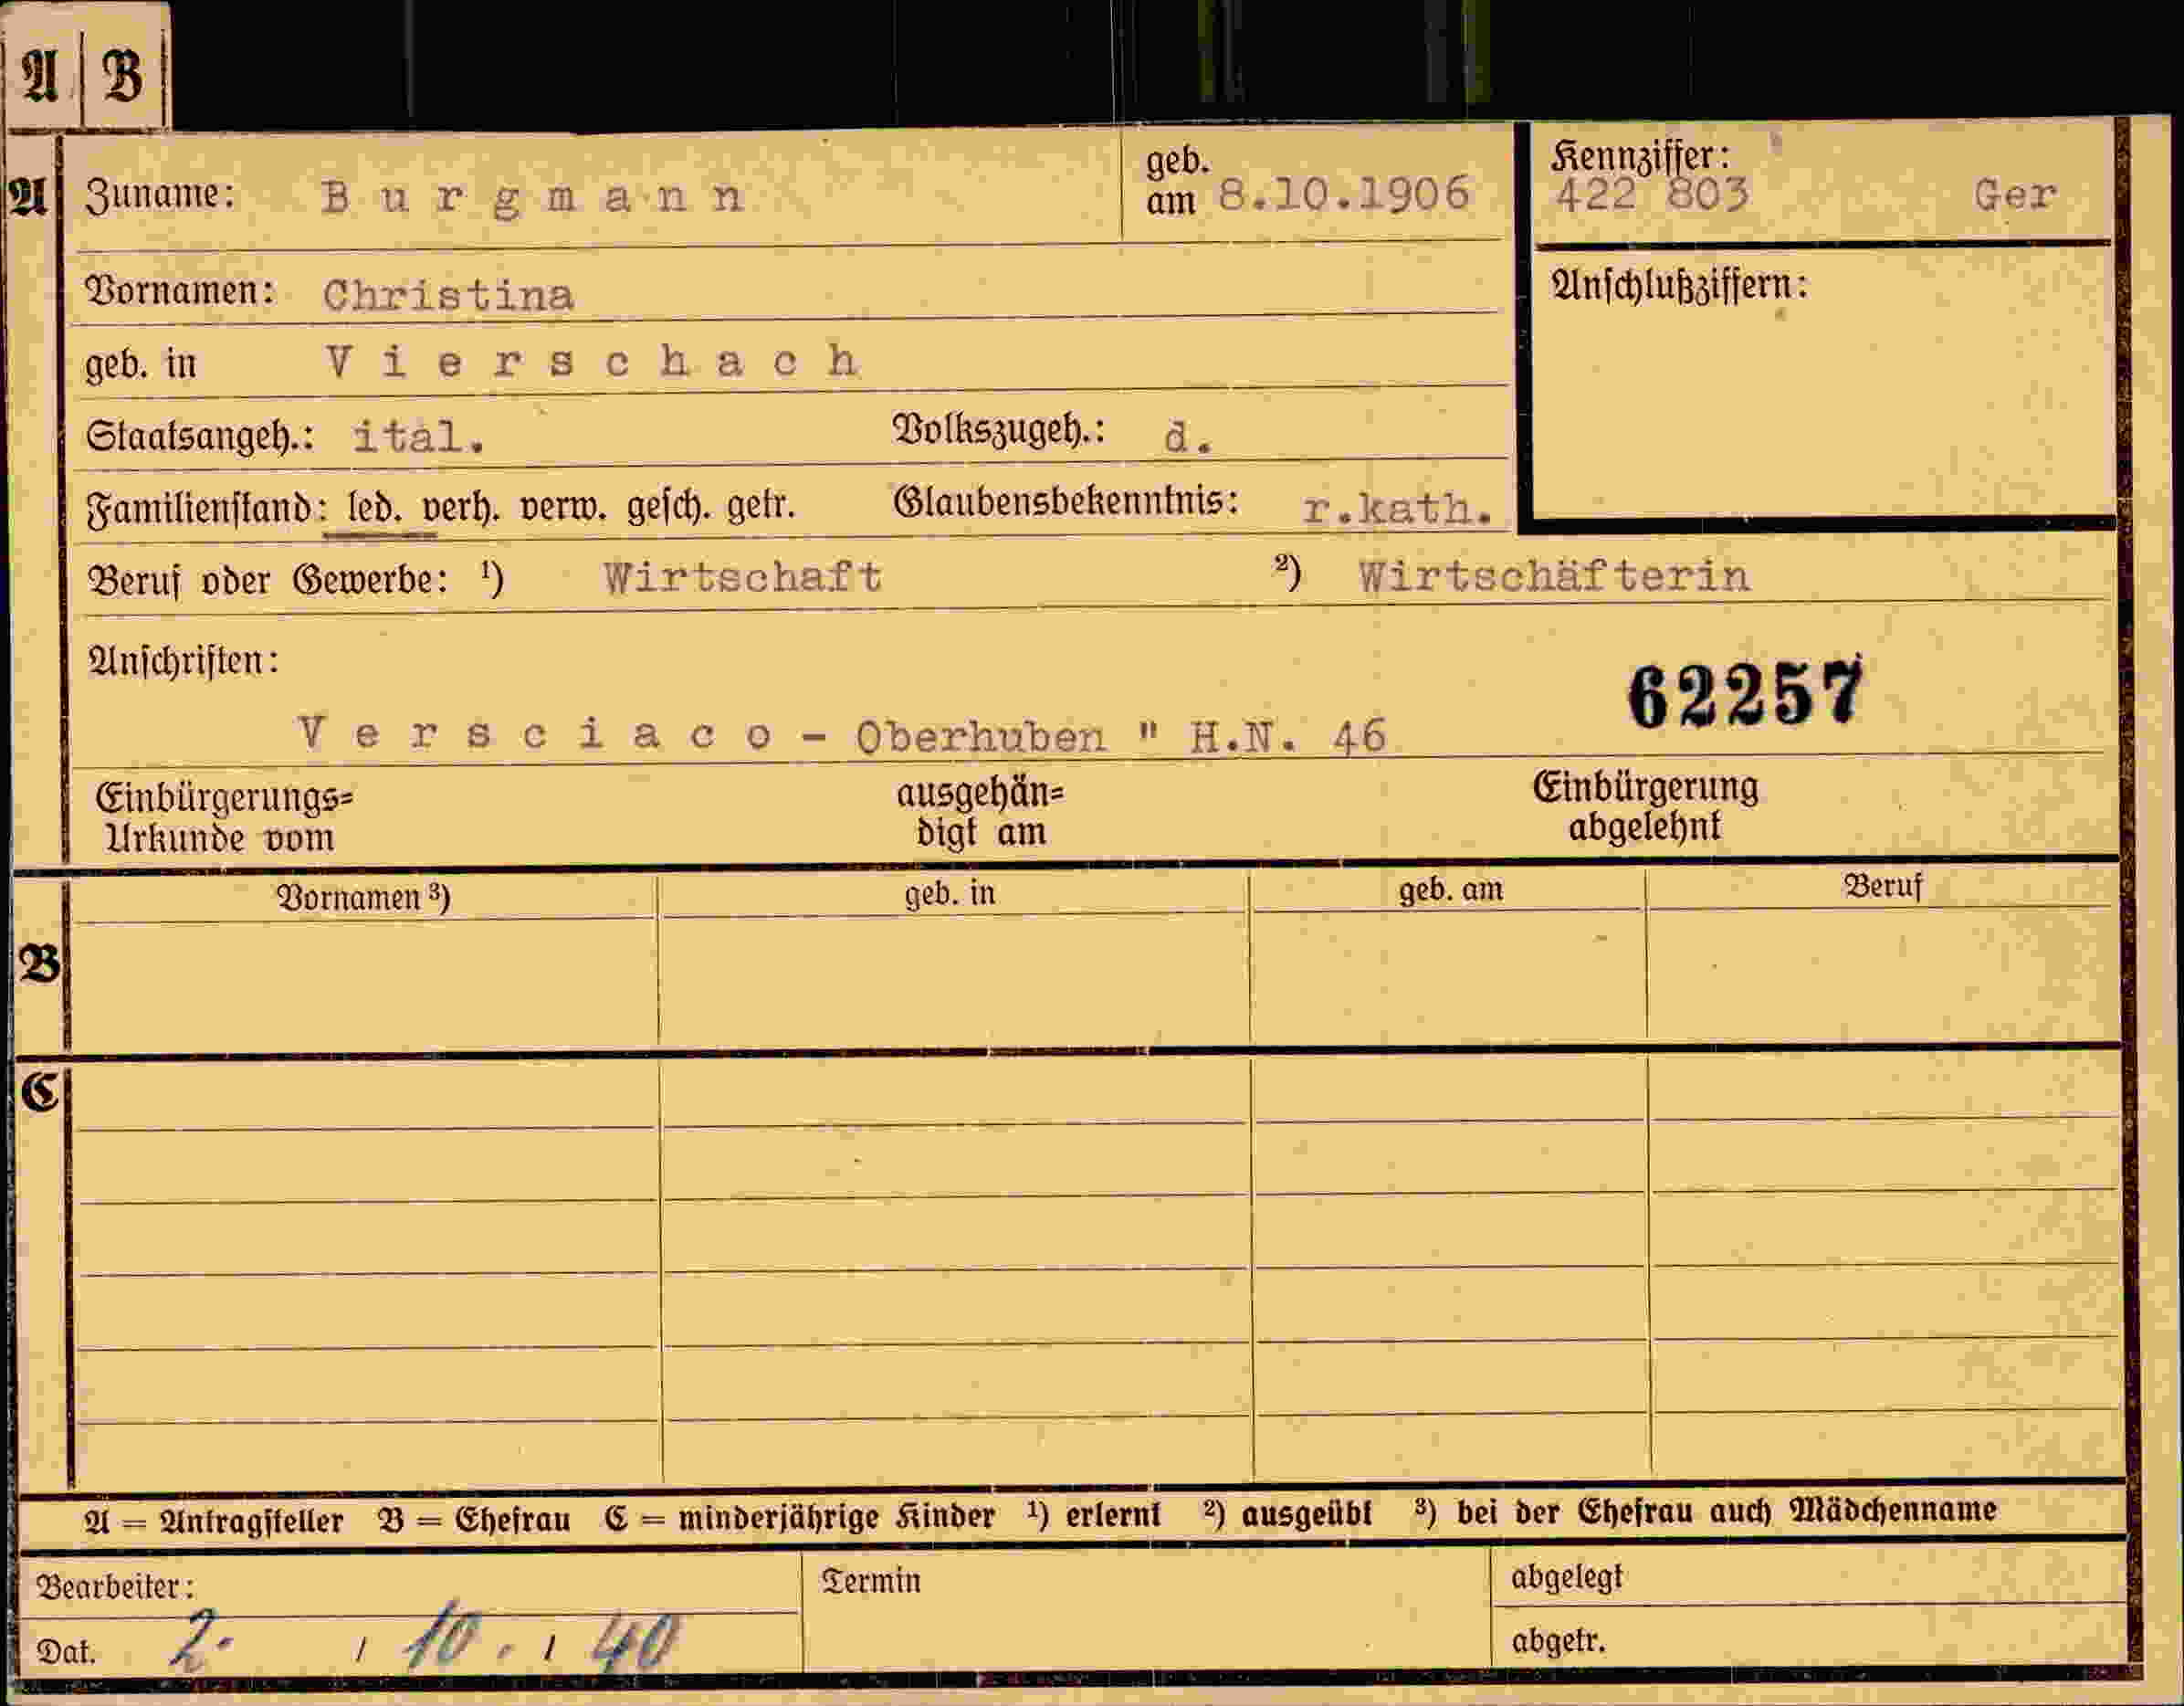 A B
A Zuname: Burgmann geb. am 8.10.1906 Kennziffer: 422 803 Ger
Vornamen: Christina Anschlußziffern:
geb. in Vierschach
Staatsangeh.: ital. Volkszugeh.: d.
Familienstand: led. verh. verw. gesch. getr. Glaubensbekenntnis: r.kath.
Beruf oder Gewerbe: ¹) Wirtschaft ²) Wirtschäfterin
Anschriften:
62257
Versciaco - Oberhuben " H.N. 46
Einbürgerungs= ausgehän= Einbürgerung
Urkunde vom digt am abgelehnt
Vornamen ³) geb. in geb. am Beruf
B
C
A = Antragsteller B = Ehefrau C = minderjährige Kinder ¹) erlernt ²) ausgeübt ³) bei der Ehefrau auch Mädchenname
Bearbeiter: Termin abgelegt
Dat. 2. / 10. / 40 abgetr.